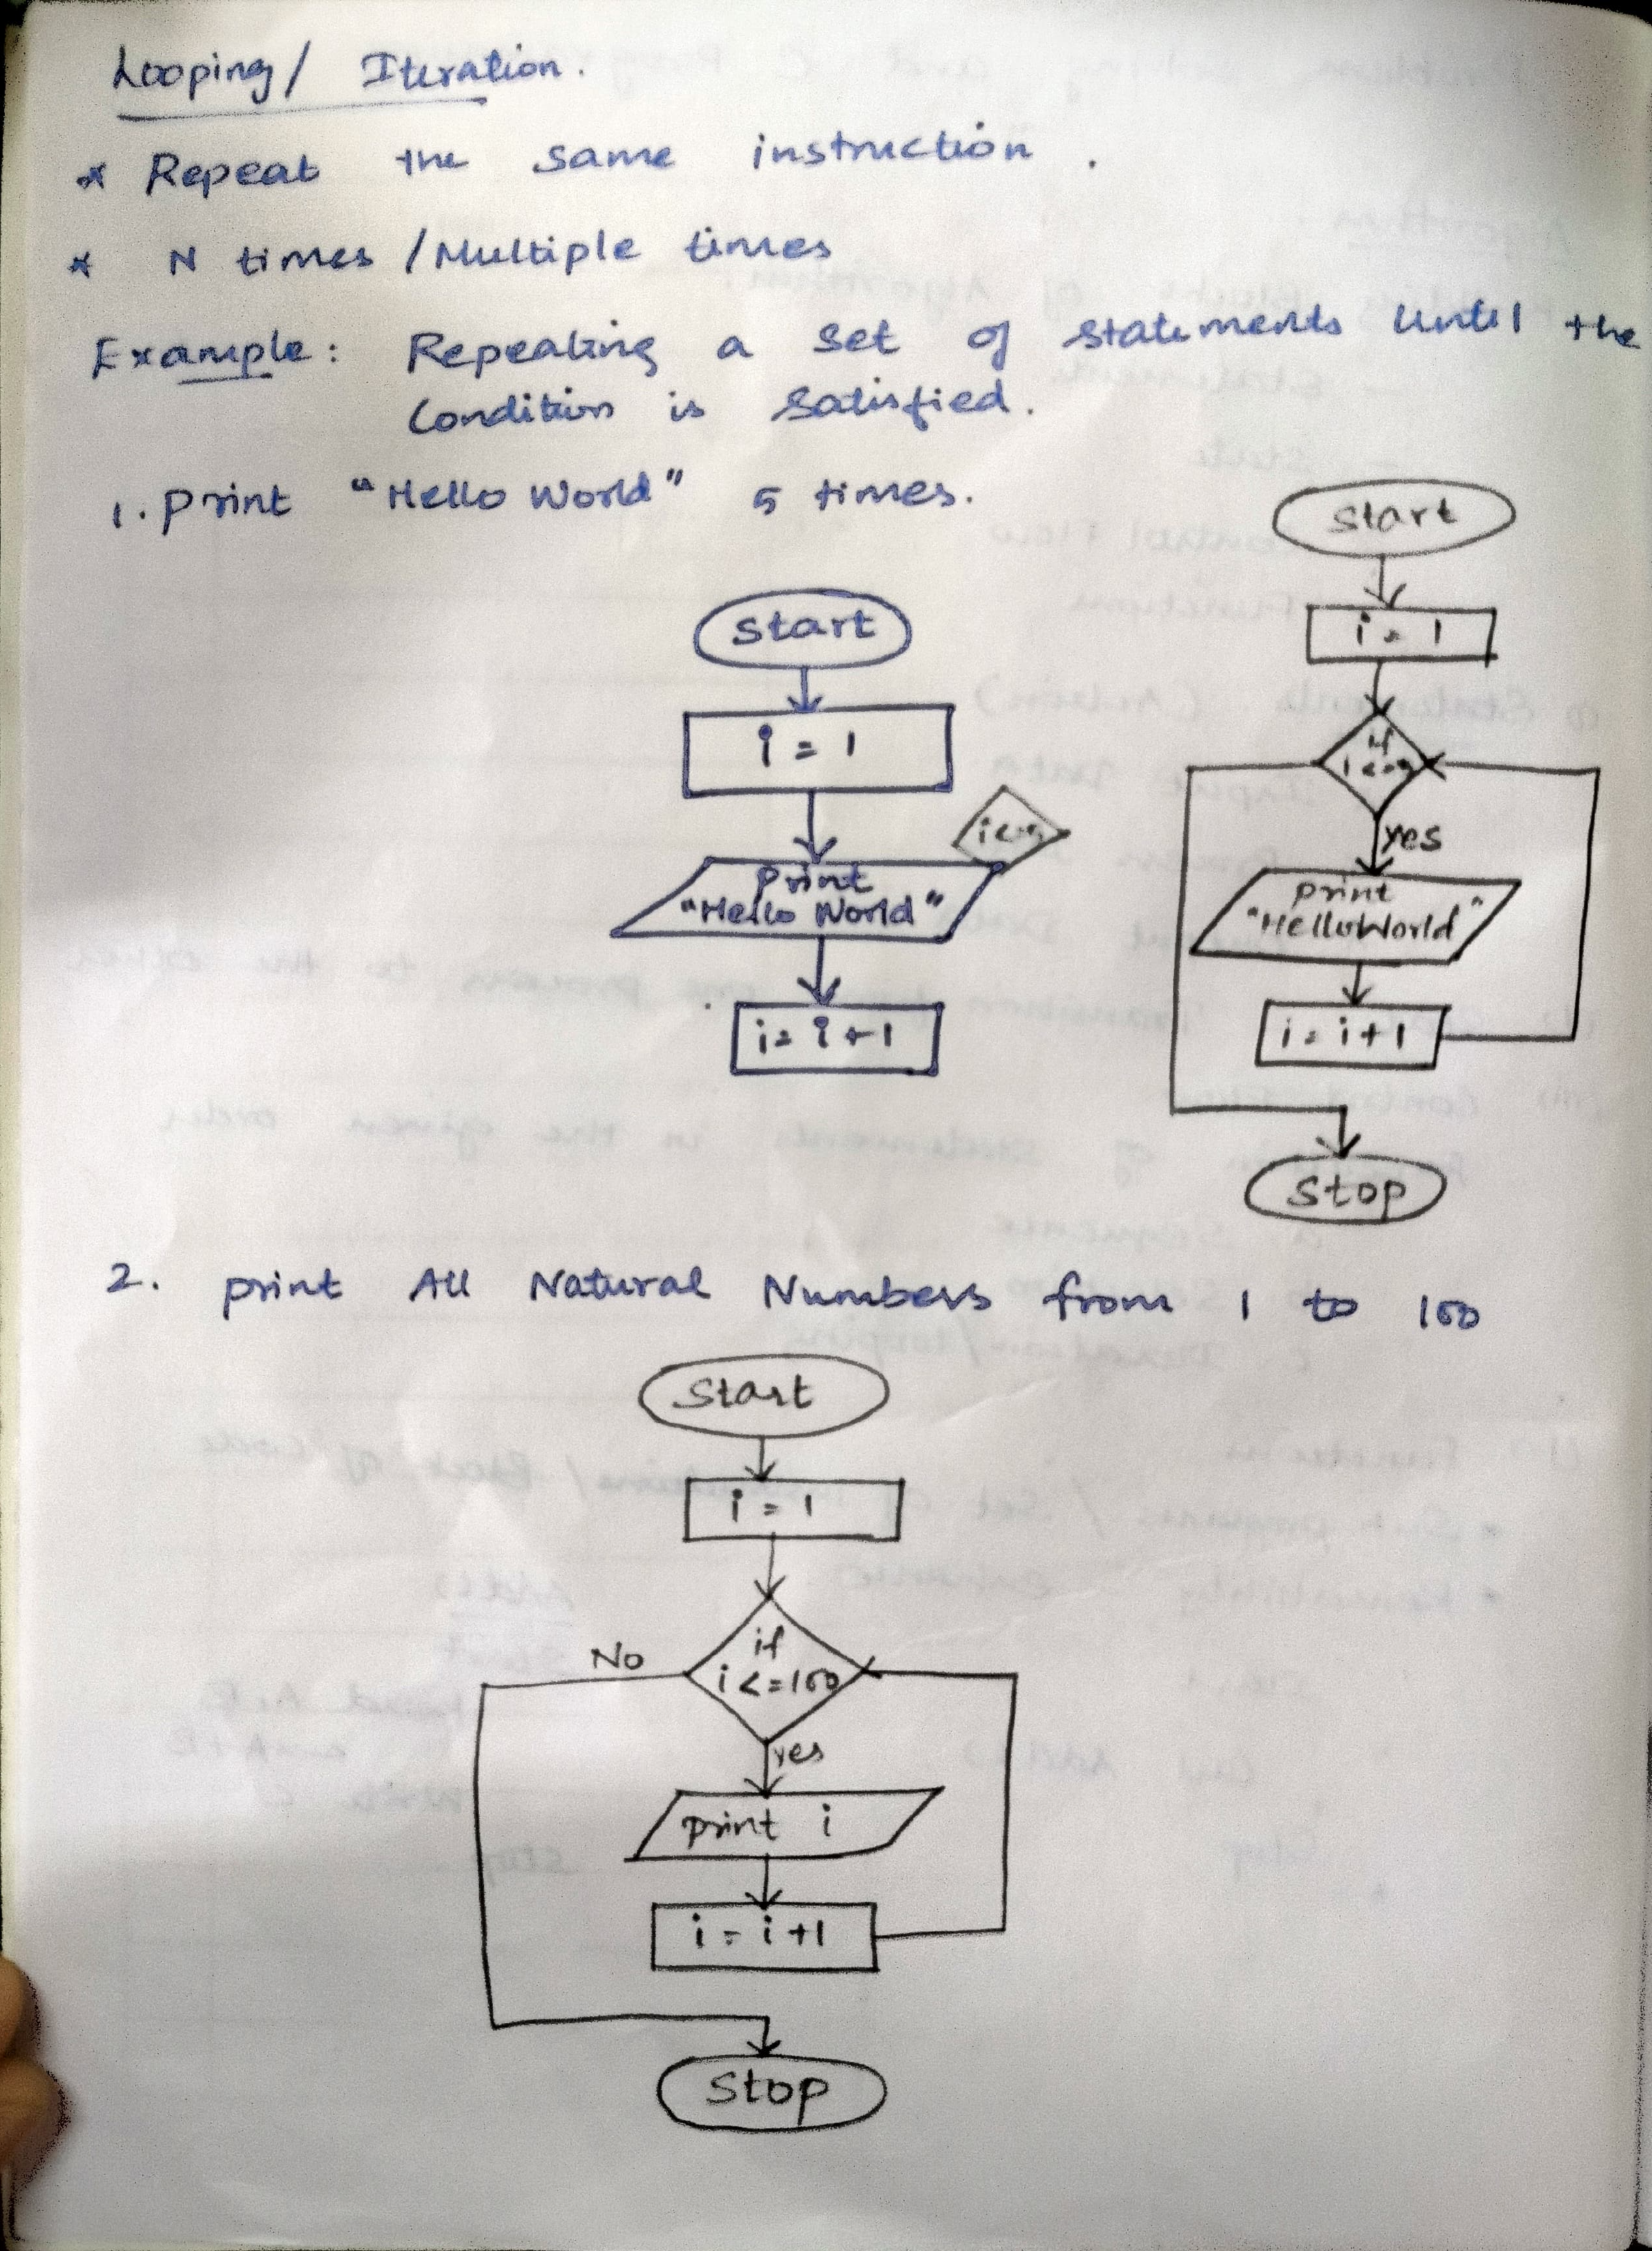 Looping/ Iteration.
* Repeat the same instruction.
* N times / Multiple times
Example: Repeating a set of statements until the
Condition is satisfied.
1. Print "Hello World" 5 times.
start
i = 1
i<=5
print
"Hello World"
i = i + 1
start
i = 1
if
i<=5
yes
print
"HelloWorld"
i = i + 1
Stop
2. print All Natural Numbers from 1 to 100
Start
i = 1
if
i <= 100
No
yes
print i
i = i + 1
Stop